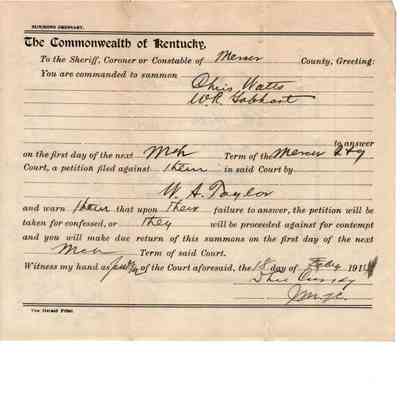 SUMMONS ORDINARY.
The Commonwealth of Kentucky,
To the Sheriff, Coroner or Constable of Mercer County, Greeting:
You are commanded to summon Chris Watts
W.R. Gabhart
to answer
on the first day of the next Mch Term of the Mercer Qty
Court, a petition filed against them in said Court by
W. A. Taylor
and warn them that upon their failure to answer, the petition will be
taken for confessed, or they will be proceeded against for contempt
and you will make due return of this summons on the first day of the next
Mch Term of said Court.
Witness my hand as of the Court aforesaid, the 18 day of Feby 191